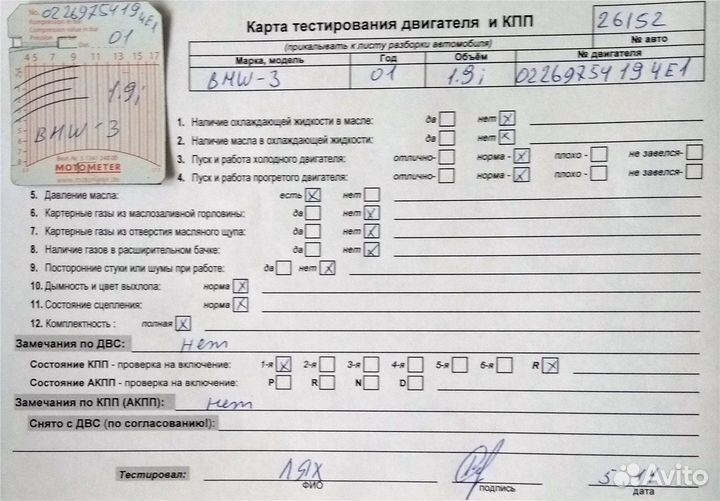 No. 0226975419 4E1
Kompression in bar
Compression value in bar
01
4 5 7 9 11 13 15 17
1.9i
BMW-3
MOTOMETER
www.motometer.de
Карта тестирования двигателя и КПП
(прикалывать к листу разборки автомобиля)
26152
№ авто
Марка, модель Год Объём № двигателя
BMW-3 01 1.9i 02269754 19 4E1
1. Наличие охлаждающей жидкости в масле: да нет X
2. Наличие масла в охлаждающей жидкости: да нет X
3. Пуск и работа холодного двигателя: отлично- норма - X плохо - не завелся-
4. Пуск и работа прогретого двигателя: отлично- норма - X плохо - не завелся-
5. Давление масла: есть X нет
6. Картерные газы из маслозаливной горловины: да нет X
7. Картерные газы из отверстия масляного щупа: да нет X
8. Наличие газов в расширительном бачке: да нет X
9. Посторонние стуки или шумы при работе: да нет X
10. Дымность и цвет выхлопа: норма X
11. Состояние сцепления: норма X
12. Комплектность : полная X
Замечания по ДВС: нет
Состояние КПП - проверка на включение: 1-я X 2-я 3-я 4-я 5-я 6-я R X
Состояние АКПП - проверка на включение: P R N D
Замечания по КПП (АКПП): нет
Снято с ДВС (по согласованию!):
Тестировал: ЛЯХ
ФИО подпись дата
Avito